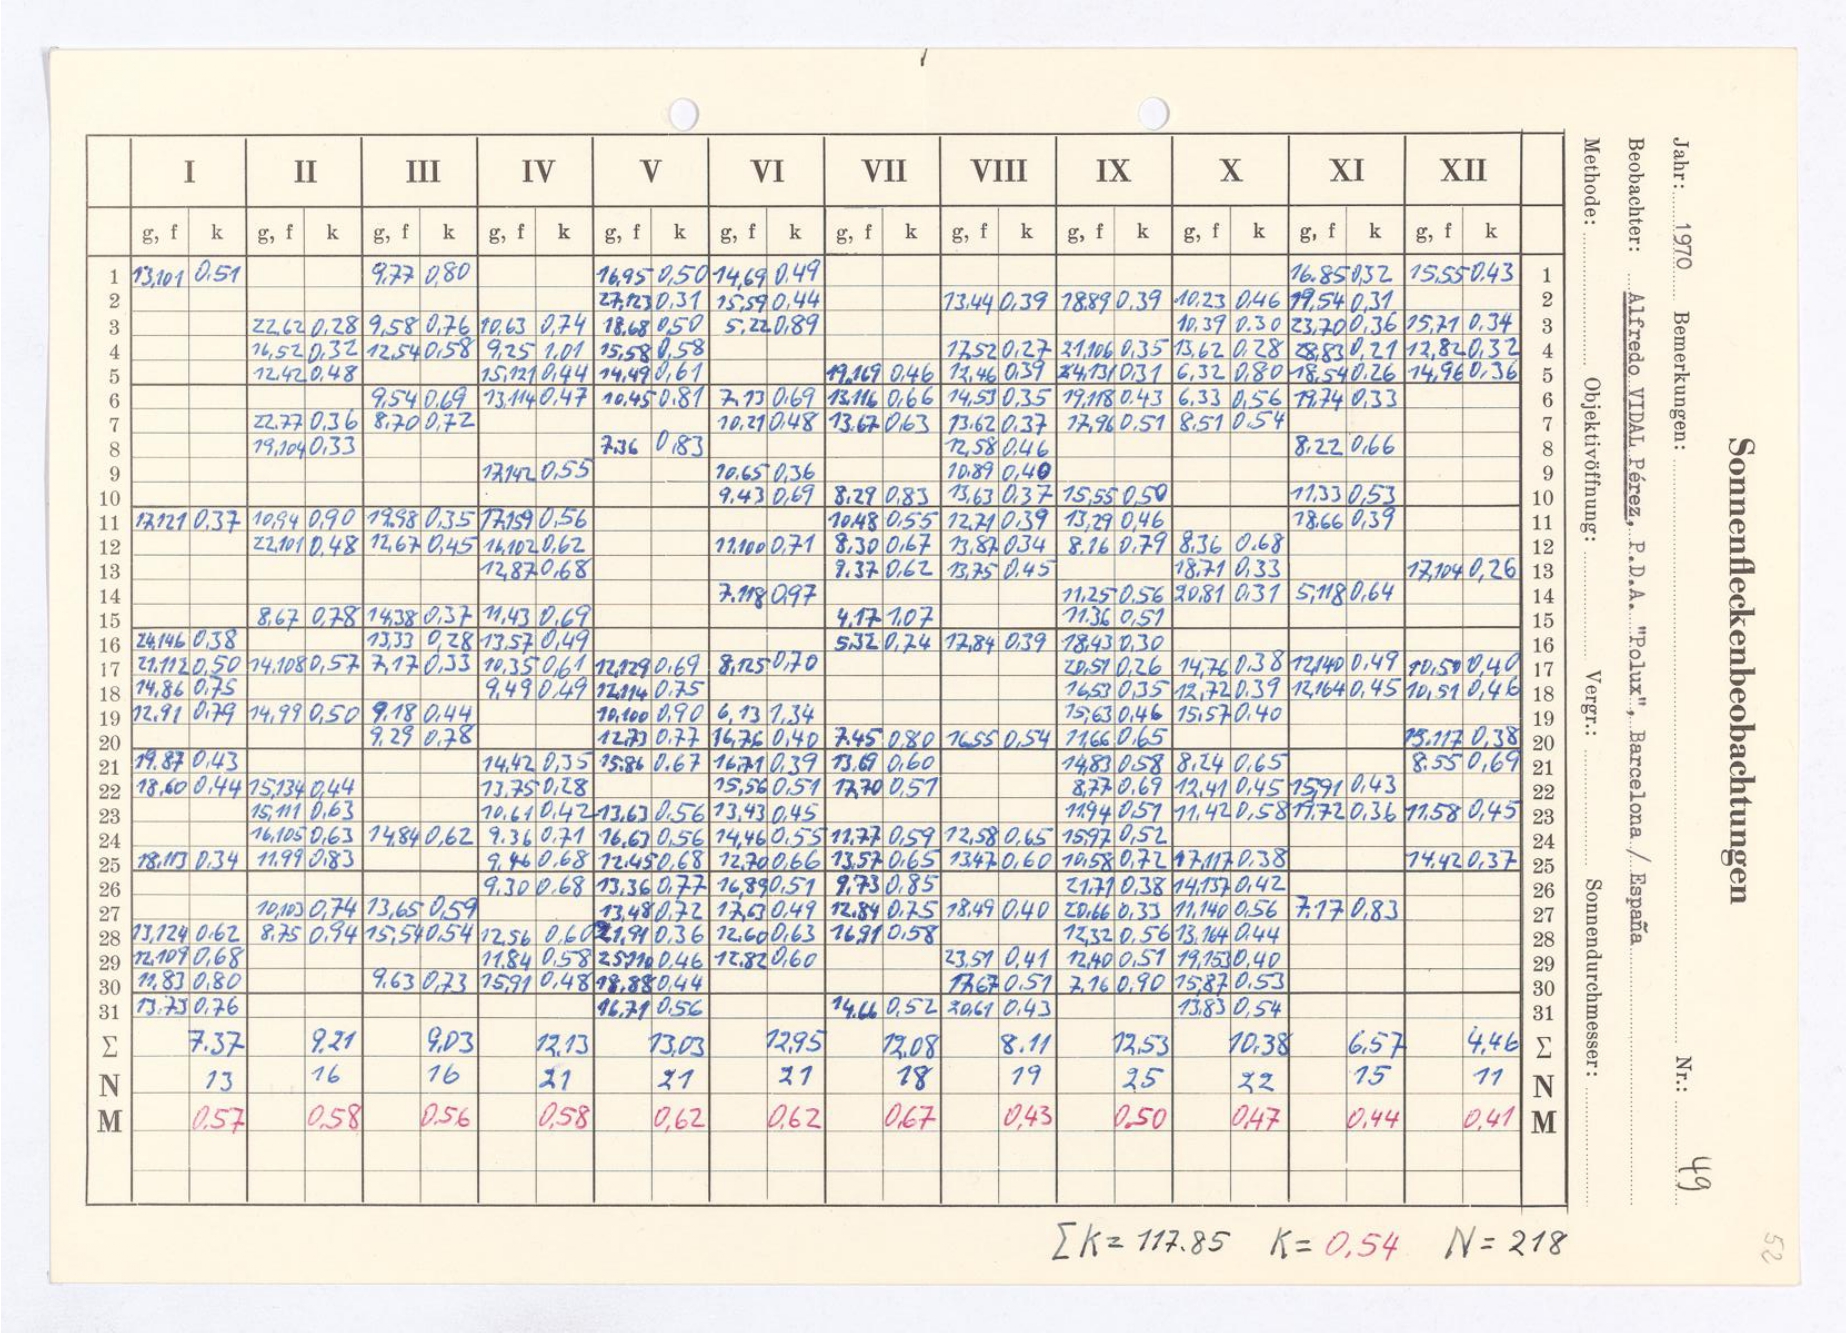 Sonnenfleckenbeobachtungen
Jahr: 1970 Bemerkungen: Nr.: 49
Beobachter: Alfredo VIDAL Pérez, P.D.A. "Polux", Barcelona / España
Methode: Objektivöffnung: Vergr.: Sonnendurchmesser:
I II III IV V VI VII VIII IX X XI XII
g, f k g, f k g, f k g, f k g, f k g, f k g, f k g, f k g, f k g, f k g, f k g, f k
1 13,101 0,51 9,77 0,80 16,95 0,50 14,69 0,49 16.85 0,32 15,55 0,43 1
2 27,123 0,31 15,59 0,44 13.44 0,39 18.89 0.39 10.23 0,46 19,54 0,31 2
3 22,62 0,28 9,58 0,76 10,63 0,74 18,68 0,50 5,22 0,89 10.39 0.30 23,70 0,36 15,71 0,34 3
4 16,52 0,32 12,54 0,58 9,25 1,01 15,58 0,58 17,52 0,27 21,106 0,35 13,62 0,28 28,83 0,21 12,82 0,32 4
5 12,42 0,48 15,121 0,44 14,49 0,61 19,169 0,46 12,46 0,39 24,131 0,31 6,32 0,80 18,54 0,26 14,96 0,36 5
6 9,54 0,69 13,114 0,47 10,45 0,81 7,13 0,69 13,116 0,66 14,53 0,35 19,118 0,43 6,33 0,56 19,74 0,33 6
7 22,77 0,36 8,70 0,72 10,21 0,48 13,67 0,63 13.62 0,37 17,96 0,51 8,51 0,54 7
8 19,104 0,33 7,36 0,83 12,58 0,46 8,22 0,66 8
9 17,142 0,55 10,65 0,36 10.89 0,40 9
10 9,43 0,69 8,29 0,83 13,63 0,37 15,55 0,50 11,33 0,53 10
11 17,121 0,37 10,94 0,90 19,98 0,35 17,159 0,56 10,48 0,55 12,71 0,39 13,29 0,46 18,66 0,39 11
12 22,101 0,48 12,67 0,45 16,102 0,62 11,100 0,71 8,30 0,67 13,87 0,34 8.16 0,79 8,36 0.68 12
13 12,87 0,68 9.37 0,62 13,75 0,45 18,71 0,33 17,104 0,26 13
14 7,118 0,97 11,25 0,56 20,81 0,31 5,118 0,64 14
15 8,67 0,78 14,38 0,37 11,43 0,69 4,17 1,07 11.36 0,51 15
16 24,146 0,38 13,33 0,28 13,57 0,49 5,32 0,74 17,84 0,39 18,43 0.30 16
17 21,112 0,50 14,108 0,57 7,17 0,33 10,35 0,61 12,129 0,69 8,125 0,70 20,51 0,26 14,76 0,38 12,140 0,49 10,50 0,40 17
18 14,86 0,75 9,49 0,49 12,114 0,75 16,53 0,35 12,72 0,39 12,164 0,45 10,51 0,46 18
19 12,91 0,79 14,99 0,50 9,18 0,44 10,100 0,90 6,13 1,34 15,63 0,46 15,57 0,40 19
20 9,29 0,78 12,73 0,77 16,76 0,40 7,45 0,80 16,55 0,54 11,66 0,65 15,117 0,38 20
21 19.87 0,43 14,42 0,35 15,86 0.67 16,71 0,39 13,69 0,60 14,83 0,58 8,24 0,65 8.55 0,69 21
22 18,60 0,44 15,134 0,44 13,75 0,28 15,56 0,51 17,70 0,51 8,77 0,69 12,41 0,45 15,91 0,43 22
23 15,111 0,63 10,61 0,42 13,63 0,56 13,43 0,45 11,94 0,51 11,42 0,58 17,72 0,36 11,58 0,45 23
24 16,105 0,63 14,84 0,62 9.36 0,71 16,67 0,56 14,46 0,55 11,77 0,59 12,58 0,65 15,97 0,52 24
25 18,113 0,34 11,99 0,83 9,46 0,68 12,45 0,68 12,70 0,66 13,57 0,65 13,47 0,60 10,58 0,72 17,117 0,38 14,42 0,37 25
26 9,30 0,68 13,36 0,77 16,89 0,51 9,73 0,85 21,71 0,38 14,137 0,42 26
27 10,103 0,74 13,65 0,59 13,48 0,72 17,63 0,49 12,84 0,75 18,49 0,40 20,66 0,33 11,140 0,56 7,17 0,83 27
28 13,124 0,62 8,75 0,94 15,54 0,54 12,56 0,60 21,91 0,36 12,60 0,63 16,91 0,58 12,32 0,56 13,164 0,44 28
29 12,109 0,68 11,84 0,58 25,110 0,46 12,82 0,60 23,51 0,41 12,40 0,51 19,153 0,40 29
30 11,83 0,80 9,63 0,73 15,91 0,48 18,88 0,44 17,67 0,51 7,16 0,90 15,87 0,53 30
31 13,73 0,76 16,71 0,56 14,66 0,52 20,61 0,43 13,83 0,54 31
Σ 7.37 9,21 9,03 12,13 13,03 12,95 12,08 8.11 12,53 10,38 6,57 4,46 Σ
N 13 16 16 21 21 21 18 19 25 22 15 11 N
M 0,57 0,58 0,56 0,58 0,62 0,62 0,67 0,43 0,50 0,47 0,44 0,41 M
Σk = 117.85 K = 0,54 N = 218
52